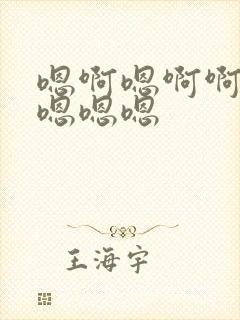 嗯啊嗯啊啊
嗯嗯嗯
王海宇